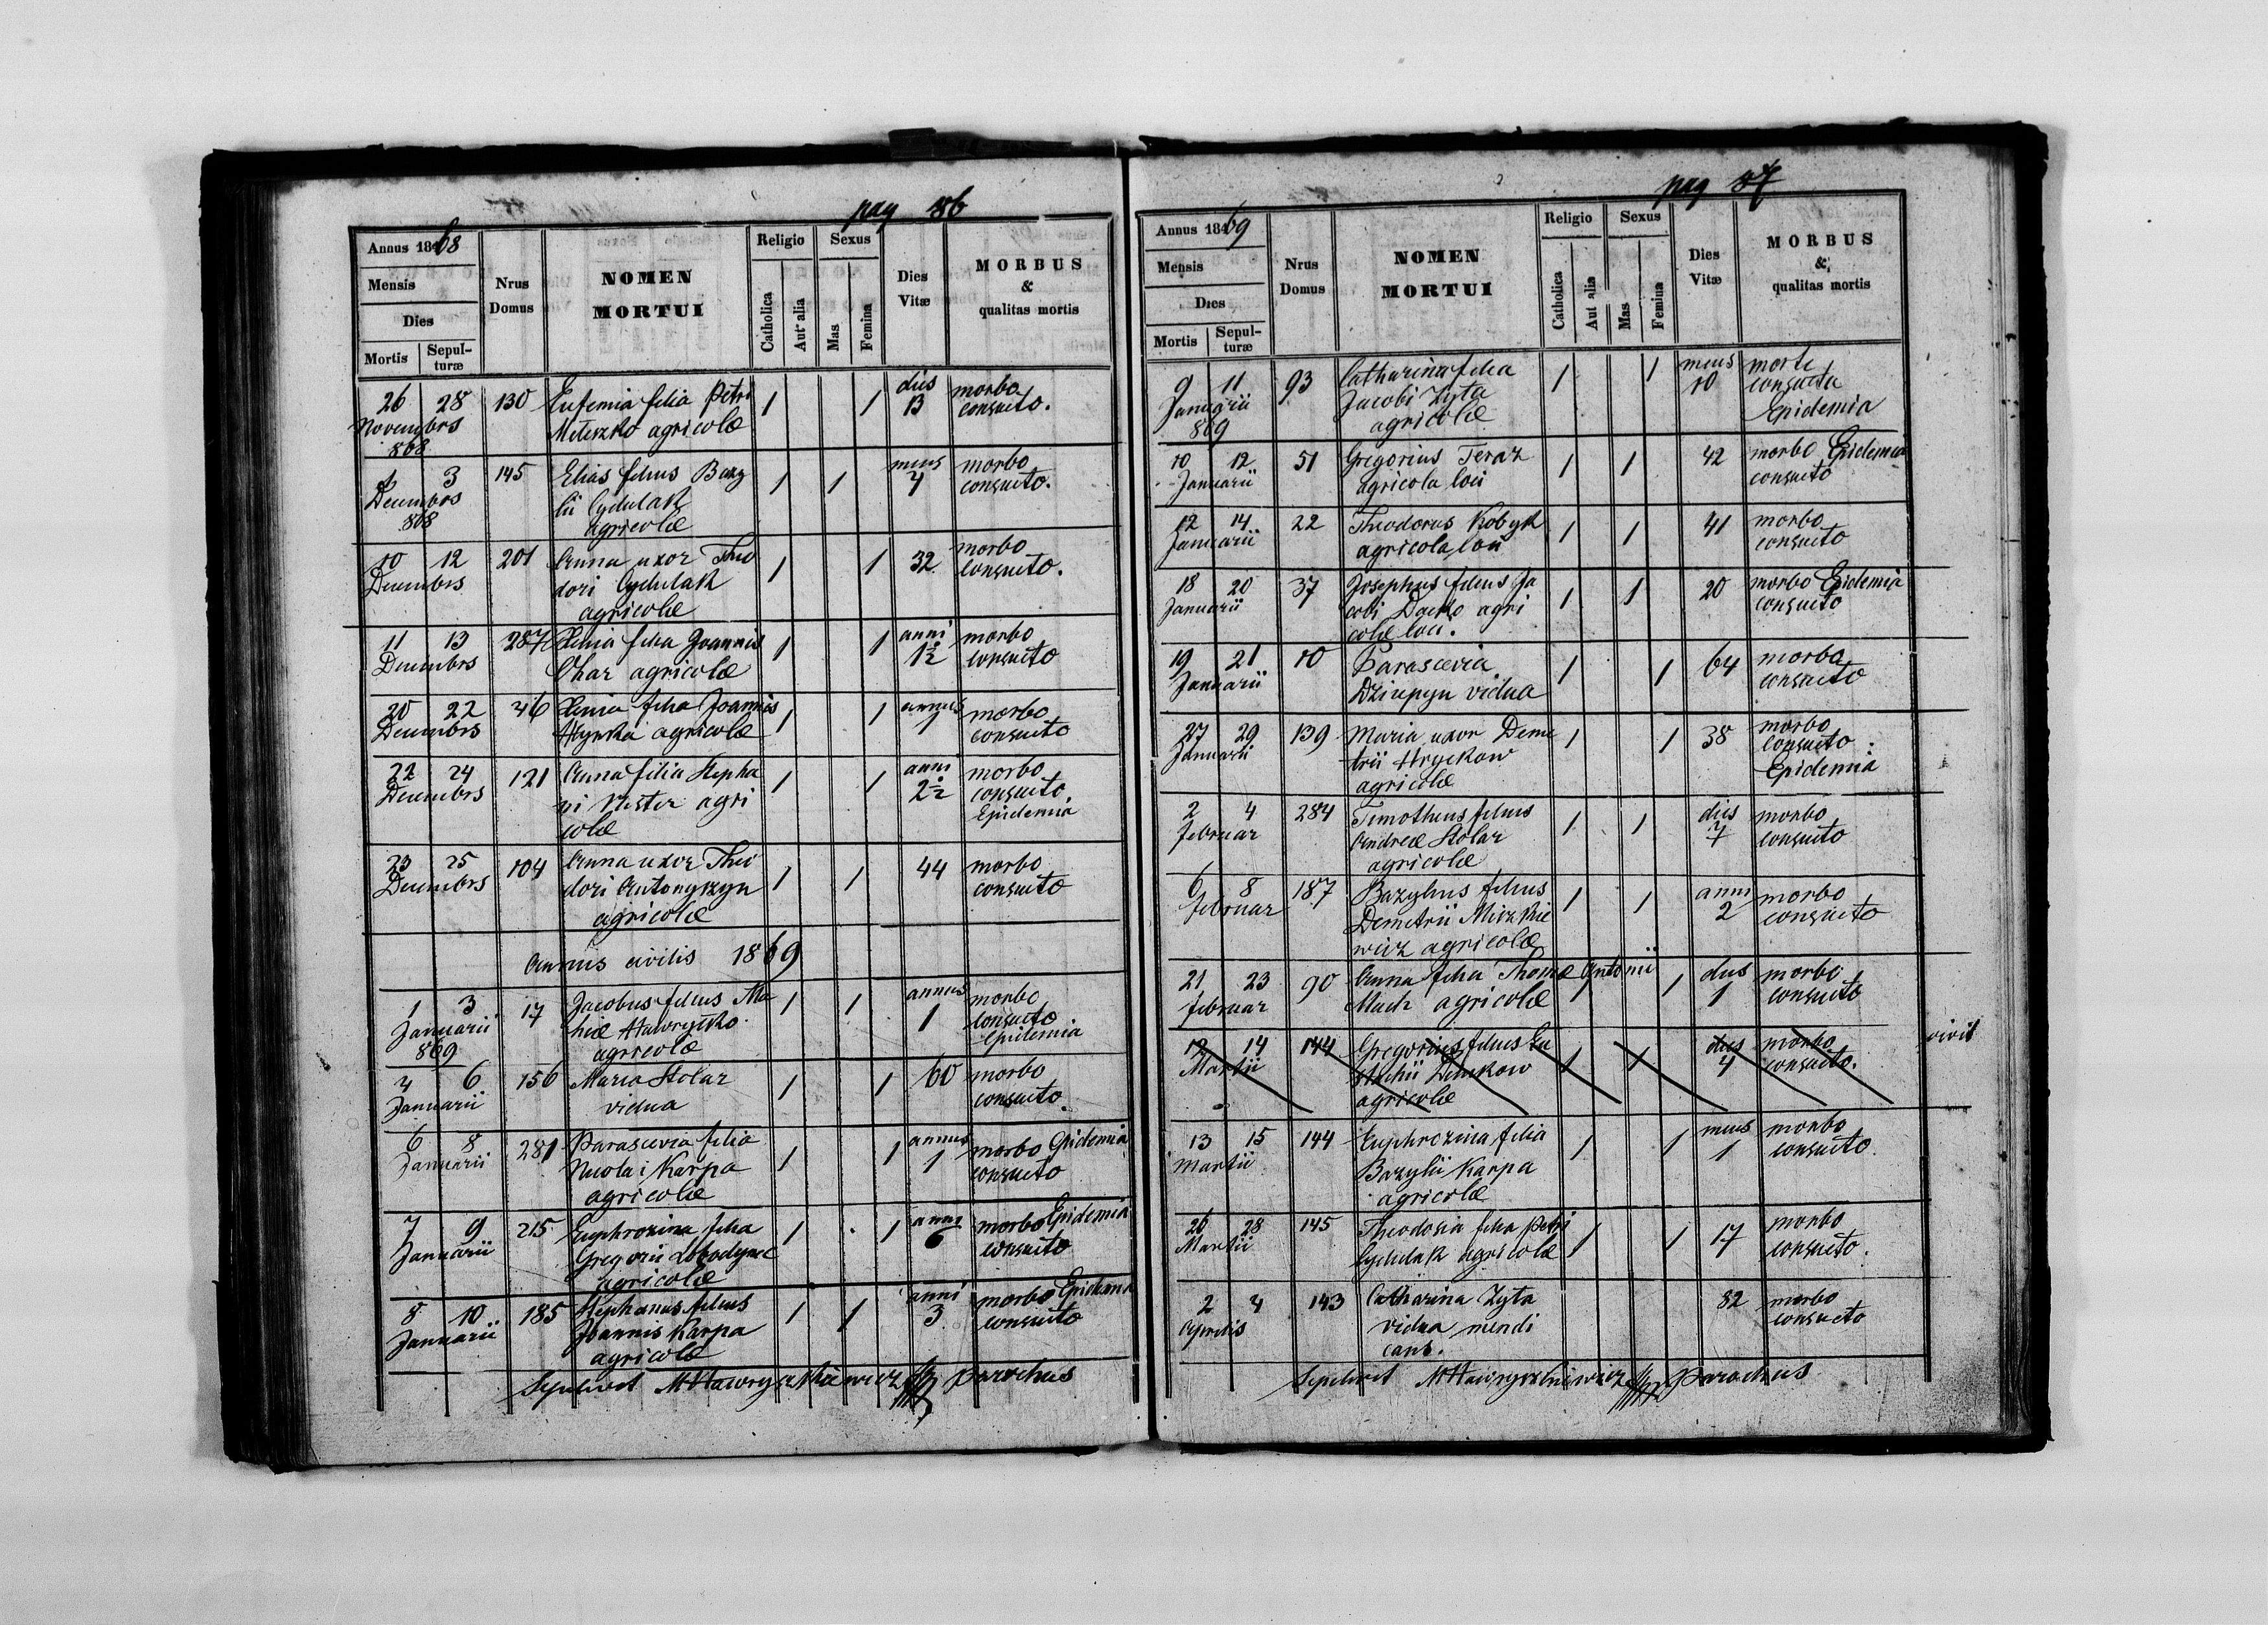 pag 86
Annus 1868
Mensis
Dies
Mortis Sepulturæ
Nrus Domus
NOMEN MORTUI
Religio
Catholica Aut alia
Sexus
Mas Femina
Dies Vitæ
MORBUS & qualitas mortis
26 28 130 Eufemia filia Petri 1 1 dies morbo
Novembrs 13 consueto.
868 agricolæ
1 3 145 Elias filius Bazy 1 1 mens morbo
Decembrs lii Cydulak 4 consueto.
868 agricolæ
10 12 201 Anna uxor Theo 1 1 32 morbo
Decembrs dori Cydulak consueto.
agricolæ
11 13 287 Xenia filia Joannis 1 1 anni morbo
Decembrs agricolæ 1½ consueto
20 22 Xenia filia Joannis 1 1 annus morbo
Decembrs agricolæ 1 consueto
22 24 121 Anna filia Stepha 1 1 anni morbo
Decembrs ni Nester agri 2½ consueto
colæ Epidemia
23 25 104 Anna uxor Theo 1 1 44 morbo
Decembrs dori Antonyszyn consueto
agricolæ
Annus civilis 1869
1 3 17 Jacobus filius 1 1 annus morbo
Januarii Hawryszko 1 consueto
869 agricolæ Epidemia
4 6 156 Maria Stolar 1 1 60 morbo
Januarii vidua consueto.
6 8 281 Parascevia filia 1 1 annus morbo Epidemia
Januarii Nicolai Karpa 1 consueto
agricolæ
7 9 215 Euphrozina filia 1 1 anni morbo Epidemia
Januarii Gregorii 6 consueto
agricolæ
8 10 185 Stephanus filius 1 1 anni morbo Epidemia
Januarii Joannis Karpa 3 consueto
agricolæ
Sepelivit MHawryszkiewicz parochus
pag 87
Annus 1869
Mensis
Dies
Mortis Sepulturæ
Nrus Domus
NOMEN MORTUI
Religio
Catholica Aut alia
Sexus
Mas Femina
Dies Vitæ
MORBUS & qualitas mortis
9 11 93 Catharina filia 1 1 mens morte
Januarii Jacobi Zyta 10 consueta
869 agricolæ Epidemia
10 12 51 Gregorius Teraz 1 1 42 morbo Epidemia
Januarii agricola loci consueto
12 14 22 Theodorus Kobyk 1 1 41 morbo
Januarii agricola loci consueto
18 20 37 Josephus filius Ja 1 1 20 morbo Epidemia
Januarii cobi Dacko agri consueto
colæ loci.
19 21 10 Parascevia 1 1 64 morbo
Januarii Dziupyn vidua consueto
27 29 139 Maria uxor Deme 1 1 38 morbo
Januarii trii Hryckow consueto
agricolæ Epidemia
2 4 284 Timotheus filius 1 1 dies morbo
Februar Andreæ Stolar 7 consueto
agricolæ
6 8 187 Bazylius filius 1 1 anni morbo
Februar Demetrii Miszkie 2 consueto
wicz agricolæ
21 23 90 Anna filia Thomæ Antonii 1 1 dies morbo
Februar Mach agricolæ 1 consueto
12 14 144 Gregorius filius Eu 1 1 dies morbo vivit
Martii stachii 4 consueto.
agricolæ
13 15 144 Euphrozina filia 1 1 mens morbo
Martii Bazylii Karpa 1 consueto.
agricolæ
26 28 145 Theodosia filia Petri 1 1 17 morbo
Martii Cydulak agricolæ consueto.
2 4 143 Catharina Zyta 82 morbo
Aprilis vidua mendi consueto
cans.
Sepelivit MHawryszkiewicz Parochus